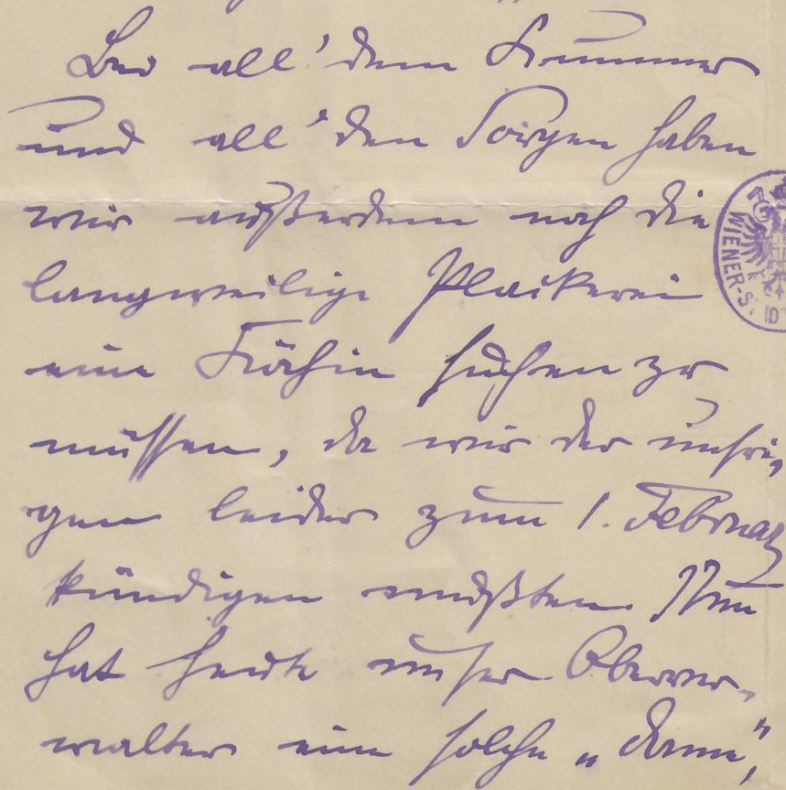 Bei all' dem Kummer
und all' den Sorgen haben
wir außerdem noch die
langweilige Plackerei
eine Köchin suchen zu
müssen, da wir der unsri-
gen leider zum 1. Februar
kündigen mußten. Nun
hat heute unser Oberver-
walter eine solche „Dame",
WIENER-S